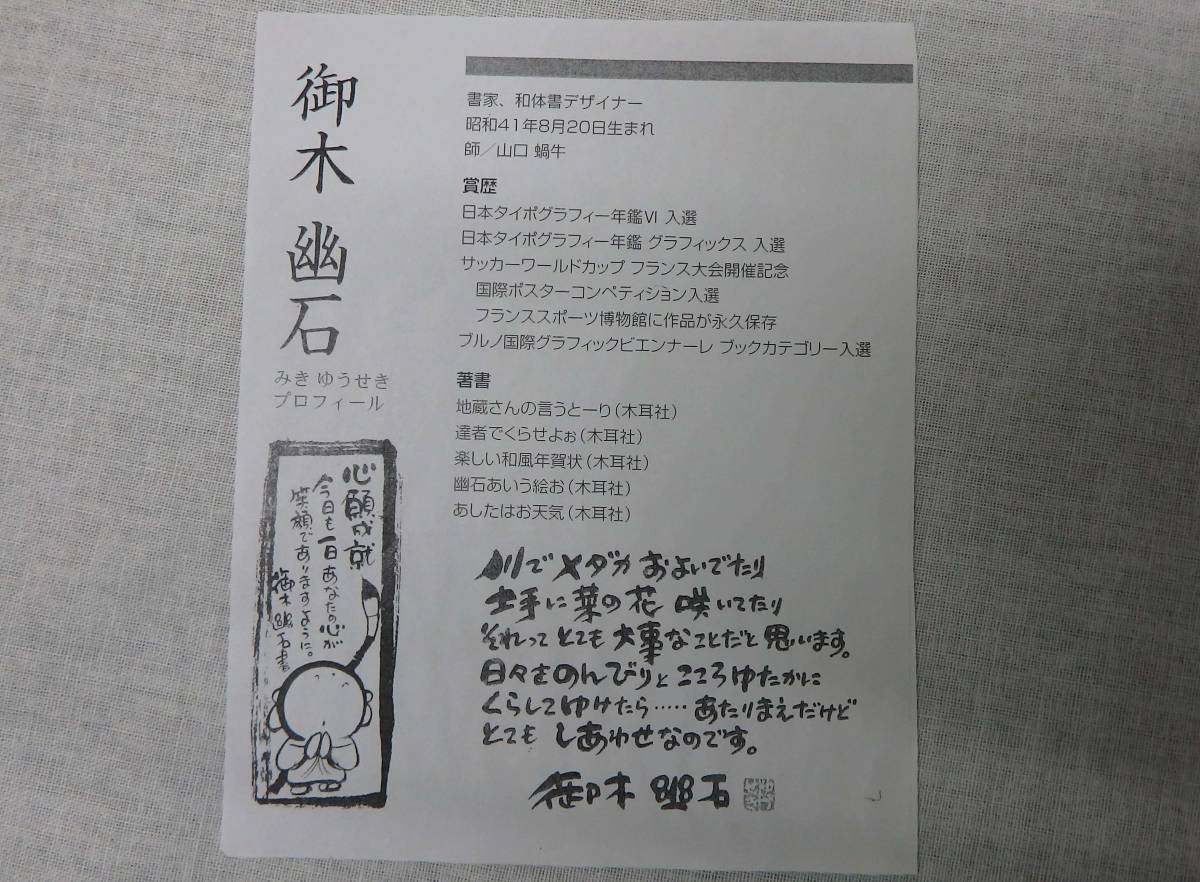 御木 幽石
みき ゆうせき
プロフィール
書家、和体書デザイナー
昭和41年8月20日生まれ
師／山口 蝸牛
賞歴
日本タイポグラフィー年鑑Ⅵ 入選
日本タイポグラフィー年鑑 グラフィックス 入選
サッカーワールドカップ フランス大会開催記念
国際ポスターコンペティション入選
フランススポーツ博物館に作品が永久保存
ブルノ国際グラフィックビエンナーレ ブックカテゴリー入選
著書
地蔵さんの言うとーり（木耳社）
達者でくらせよぉ（木耳社）
楽しい和風年賀状（木耳社）
幽石あいう絵お（木耳社）
あしたはお天気（木耳社）
心願成就
今日も一日あなたの心が
笑顔でありますように。
御木幽石書
川でメダカ およいでたり
土手に菜の花 咲いてたり
それって とても 大事なことだと 思います。
日々を のんびりと こころ ゆたかに
くらして ゆけたら…… あたりまえだけど
とても しあわせなのです。
御木 幽石